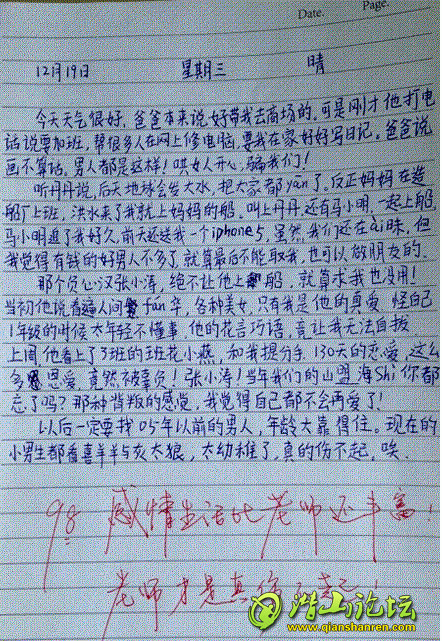 Date.
Page.
12月19日 星期三 晴
今天天气很好,爸爸本来说好带我去商场的,可是刚才他打电
话说要加班,帮很多人在网上修电脑,要我在家好好写日记。爸爸说
画不算话,男人都是这样!哄女人开心,骗我们!
听丹丹说,后天地球会发大水,把大家都yān了。反正妈妈在造
船厂上班,洪水来了我就上妈妈的船。叫上丹丹,还有马小明,一起上船,
马小明追了我好久,前天还送我一个iphone5,虽然我们还在ài昧,但
我觉得有钱的好男人不多了,就算最后不能取我,也可以做朋友的。
那个负心汉张小涛,绝不让他上船,就算求我也没用!
当初他说看遍人间fán华,各种美女,只有我是他的真爱,怪自己
1年级的时候太年轻不懂事,他的花言巧语,竟让我无法自拔
上周他看上了3班的班花小燕,和我提分手,130天的恋爱,这么
多恩爱,竟然被辜负!张小涛!当年我们的山盟海Shi你都
忘了吗?那种背叛的感觉,我觉得自己都不会再爱了!
以后一定要找05年以前的男人,年龄大靠得住。现在的
小男生都看喜羊羊与灰太狼,太幼稚了,真的伤不起,唉.
98 感情生活比老师还丰富!
老师才是真伤不起
潜山论坛
www.qianshanren.com